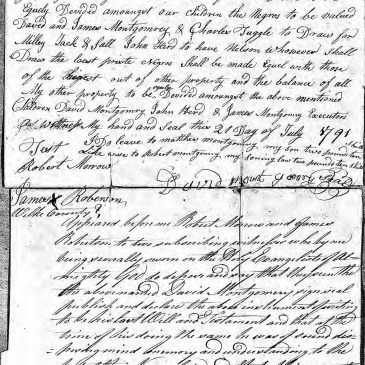 Equely Devided amoungst our children the Negros to be valued
David and James Montgomrey & Charles Tuggle to Draw for
Milley Jack & Sall John Herd to have Nelson whomever Shall
Draw the least private Negros Shall be made Equel with those
of the out of other property and the balance of all
My other property to be Devided amoungst the above mentioned
Children David Montgomry John Herd & James Montgomry Executors
As Wittness My hand and Seal this 21 Day of July 1791
Test I Do leave to matthew montgomry my son two pound ten
Like wise to Robert montgomry my son two pound ten
Robert Morrow
David
James X Roberson
Wilks County
Appeared before me Robert Morrow and James
Roberson to two subscribing witnesses who by me
being severally sworn on the Holy Evangelists of Al-
mighty God do depose and say that they seen the
the above named David Montgomery sign seal
publish and declare the above instrument
to be his last Will and Testament and that at the
time of his doing the same he was of sound dis-
posing mind memory and understanding to the